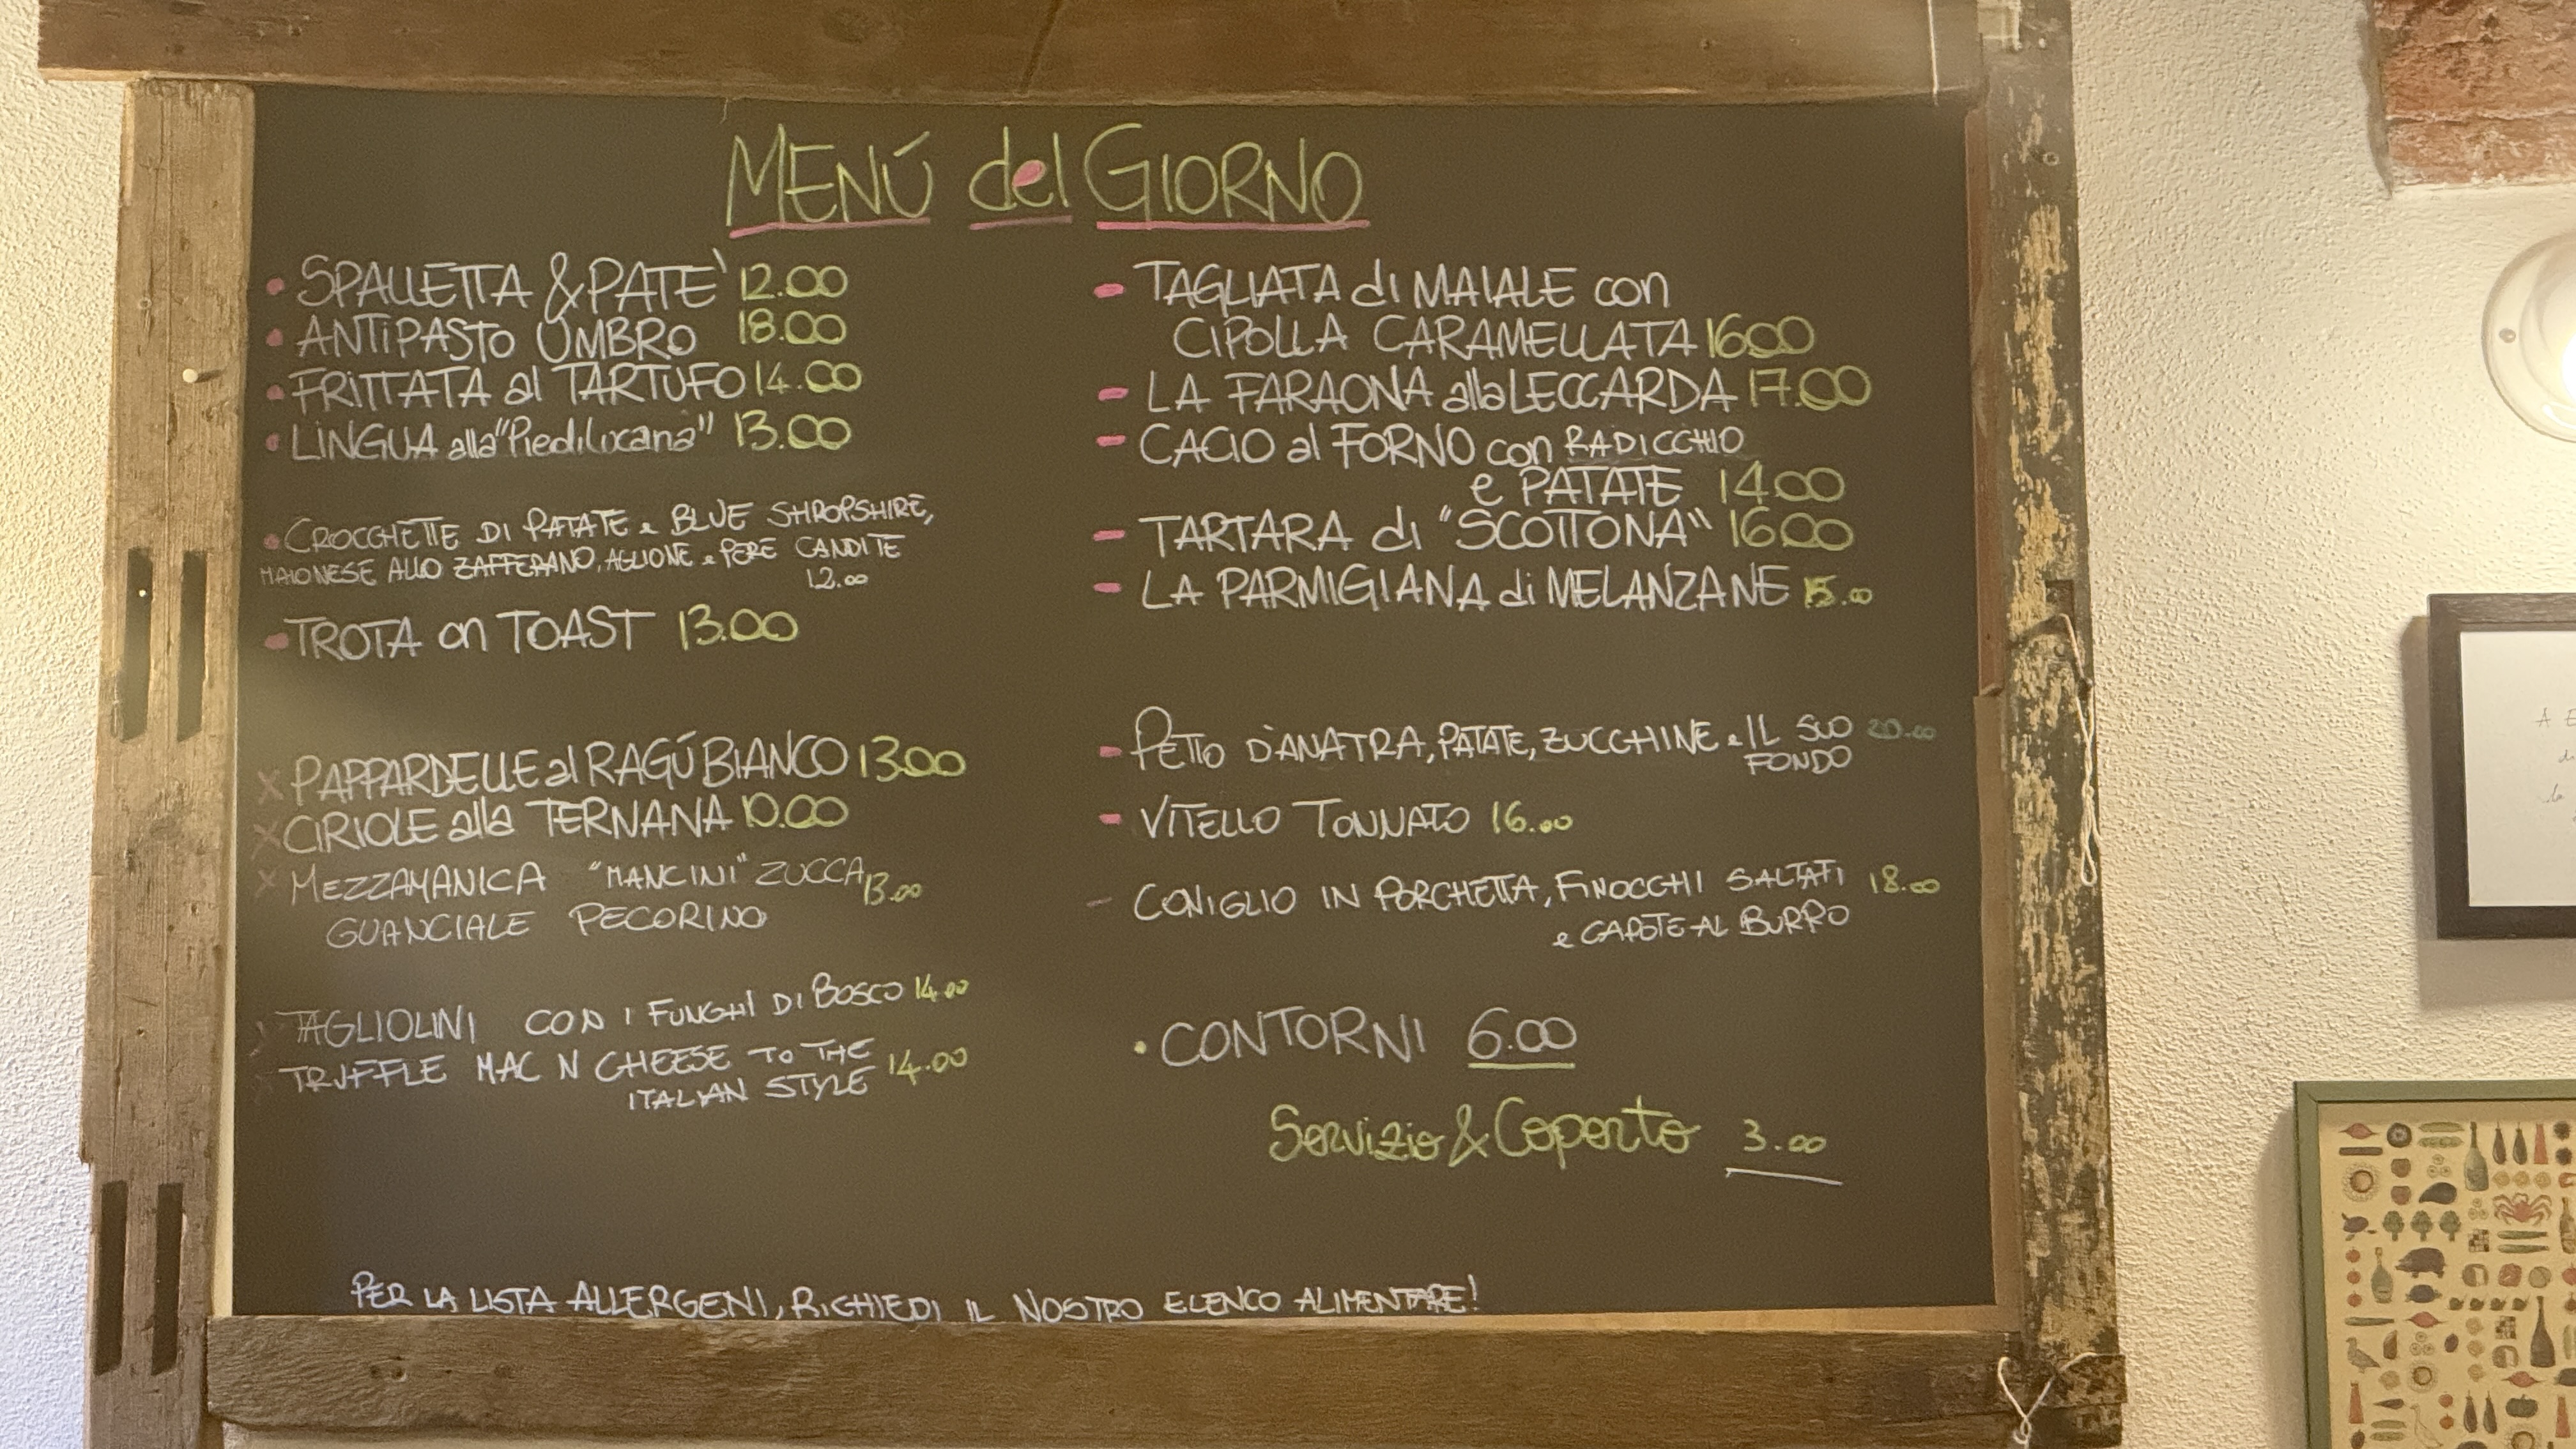 MENÚ del GIORNO
• SPALLETTA & PATE` 12.00
• ANTIPASTO UMBRO 18.00
• FRITTATA al TARTUFO 14.00
• LINGUA alla "Piedilucana" 13.00
• CROCCHETTE DI PATATE e BLUE SHROPSHIRE,
MAIONESE ALLO ZAFFERANO, AGLIONE e PERE CANDITE
12.00
- TROTA on TOAST 13.00
x PAPPARDELLE al RAGÚ BIANCO 13.00
x CIRIOLE alla TERNANA 10.00
x MEZZAMANICA "MANCINI" ZUCCA 13.00
GUANCIALE PECORINO
x TAGLIOLINI CON I FUNGHI DI BOSCO 14.00
TRUFFLE MAC N CHEESE TO THE 14.00
ITALIAN STYLE
- TAGLIATA di MAIALE con
CIPOLLA CARAMELLATA 16.00
- LA FARAONA alla LECCARDA 17.00
- CACIO al FORNO con RADICCHIO
e PATATE 14.00
- TARTARA di "SCOTTONA" 16.00
- LA PARMIGIANA di MELANZANE 15.00
- PETTO D'ANATRA, PATATE, ZUCCHINE e IL SUO 20.00
FONDO
- VITELLO TONNATO 16.00
- CONIGLIO IN PORCHETTA, FINOCCHI SALTATI 18.00
e CAROTE AL BURRO
• CONTORNI 6.00
Servizio & Coperto 3.00
PER LA LISTA ALLERGENI, RICHIEDI IL NOSTRO ELENCO ALIMENTARE!